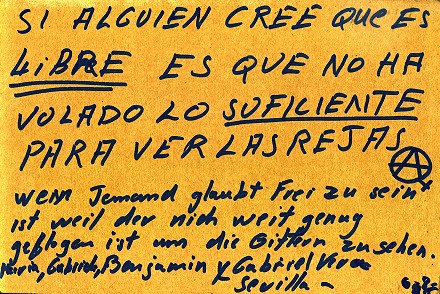 SI ALGUIEN CREE QUE ES
LIBRE ES QUE NO HA
VOLADO LO SUFICIENTE
PARA VER LAS REJAS
wenn Jemand glaubt Frei zu sein
ist weil der nich weit genug
geflogen ist um die Gittern zu sehen.
Gabriele, Benjamin y Gabriel
Sevilla